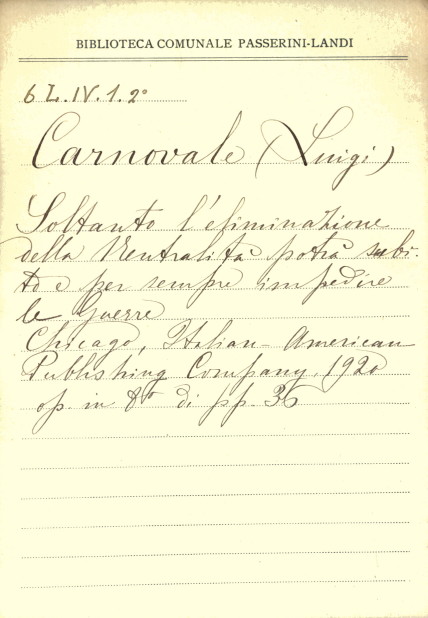 BIBLIOTECA COMUNALE PASSERINI-LANDI
6 L. IV. 1. 2°
Carnovale (Luigi)
Soltanto l'eliminazione
della Neutralità potrà subi-
to e per sempre impedire
le Guerre
Chicago, Italian-American
Publishing Company. 1920
op. in 8° di pp. 36